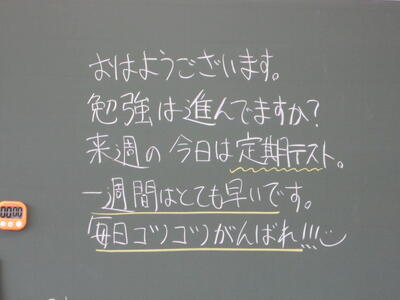 おはようございます。
勉強は進んでますか?
来週の今日は定期テスト。
一週間はとても早いです。
毎日コツコツがんばれ!!!
00:00